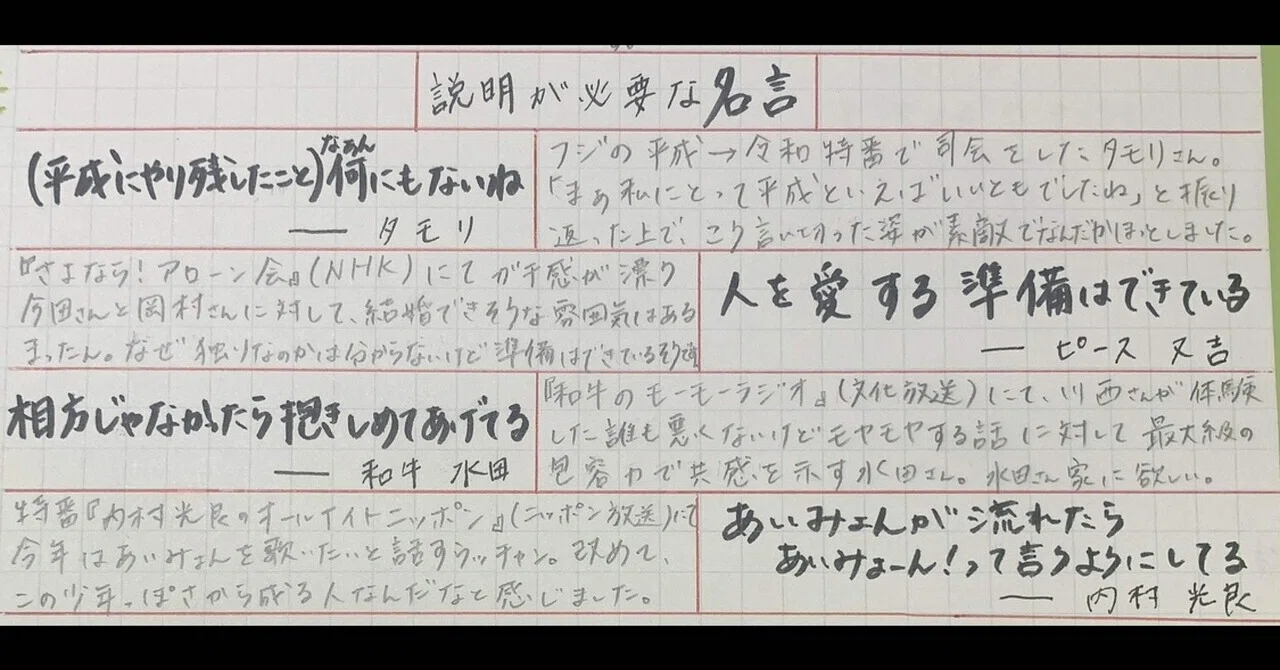 説明が必要な名言
なぁん
(平成にやり残したこと)何にもないね
── タモリ
フジの平成→令和特番で司会をしたタモリさん。
「まぁ私にとって平成といえばいいともでしたね」と振り
返った上で、こう言い切った姿が素敵でなんだかほっとしました。
『さよなら!アローン会』(NHK)にてガチ感が漂う
今田さんと岡村さんに対して、結婚できそうな雰囲気はある
またん。なぜ独りなのかは分からないけど準備はできているそうです
人を愛する準備はできている
── ピース 又吉
相方じゃなかったら抱きしめてあげてる
── 和牛 水田
『和牛のモーモーラジオ』(文化放送)にて、川西さんが体験
した誰も悪くないけどモヤモヤする話に対して最大級の
包容力で共感を示す水田さん。水田さん家に欲しい。
特番『内村光良のオールナイトニッポン』(ニッポン放送)にて
今年はあいみょんを歌いたいと話すウッチャン。改めて、
この少年っぽさから成る人なんだなと感じました。
あいみょんが流れたら
あいみょーん!って言うようにしてる
── 内村 光良